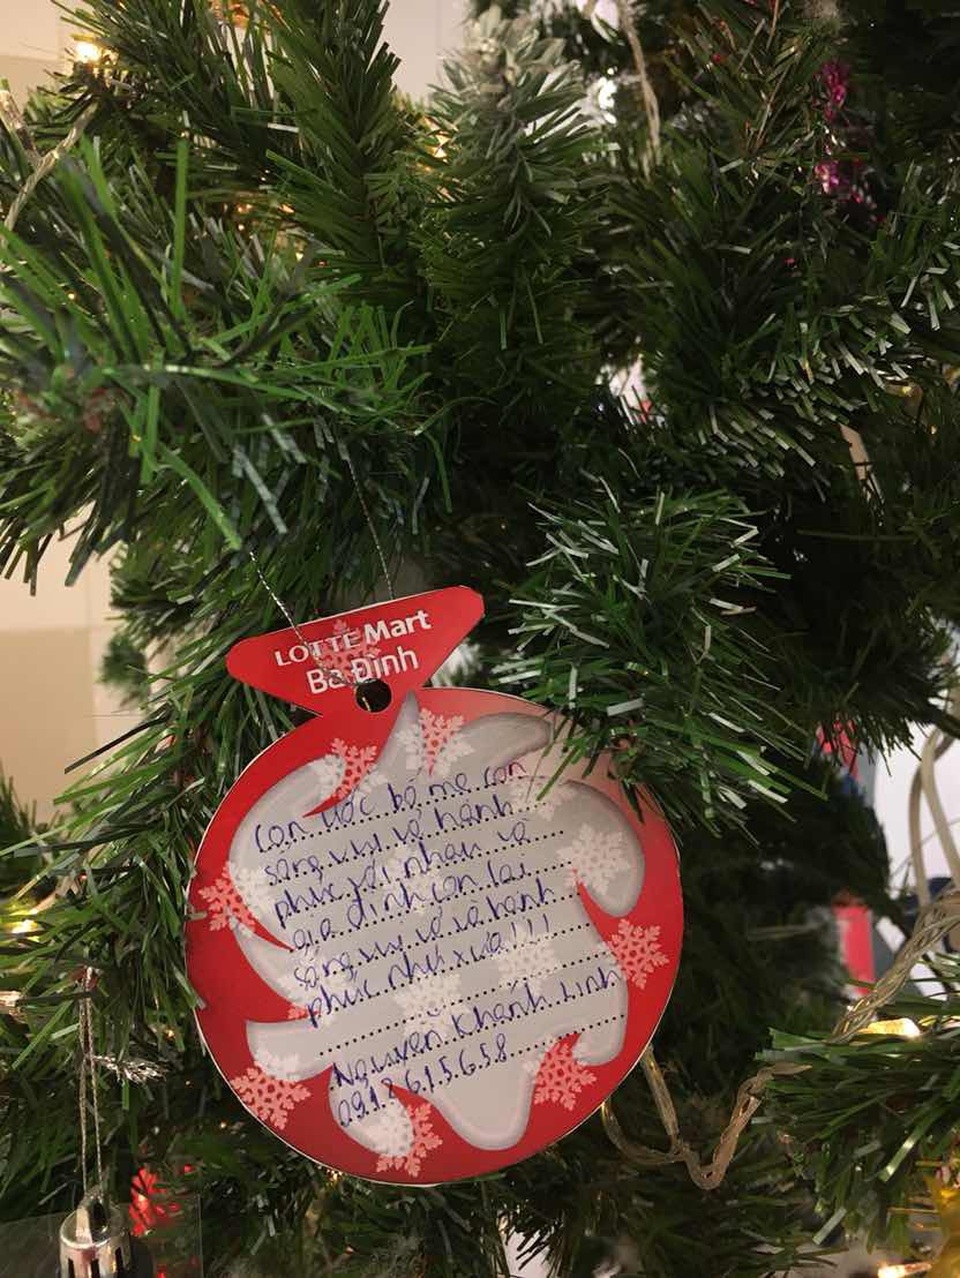 LOTTE Mart
Ba Đình
Con ước bố mẹ con
sống vui vẻ hạnh
phúc với nhau và
gia đình con lại
sống vui vẻ và hạnh
phúc như xưa!!!
Nguyễn Khánh Linh
0918615658